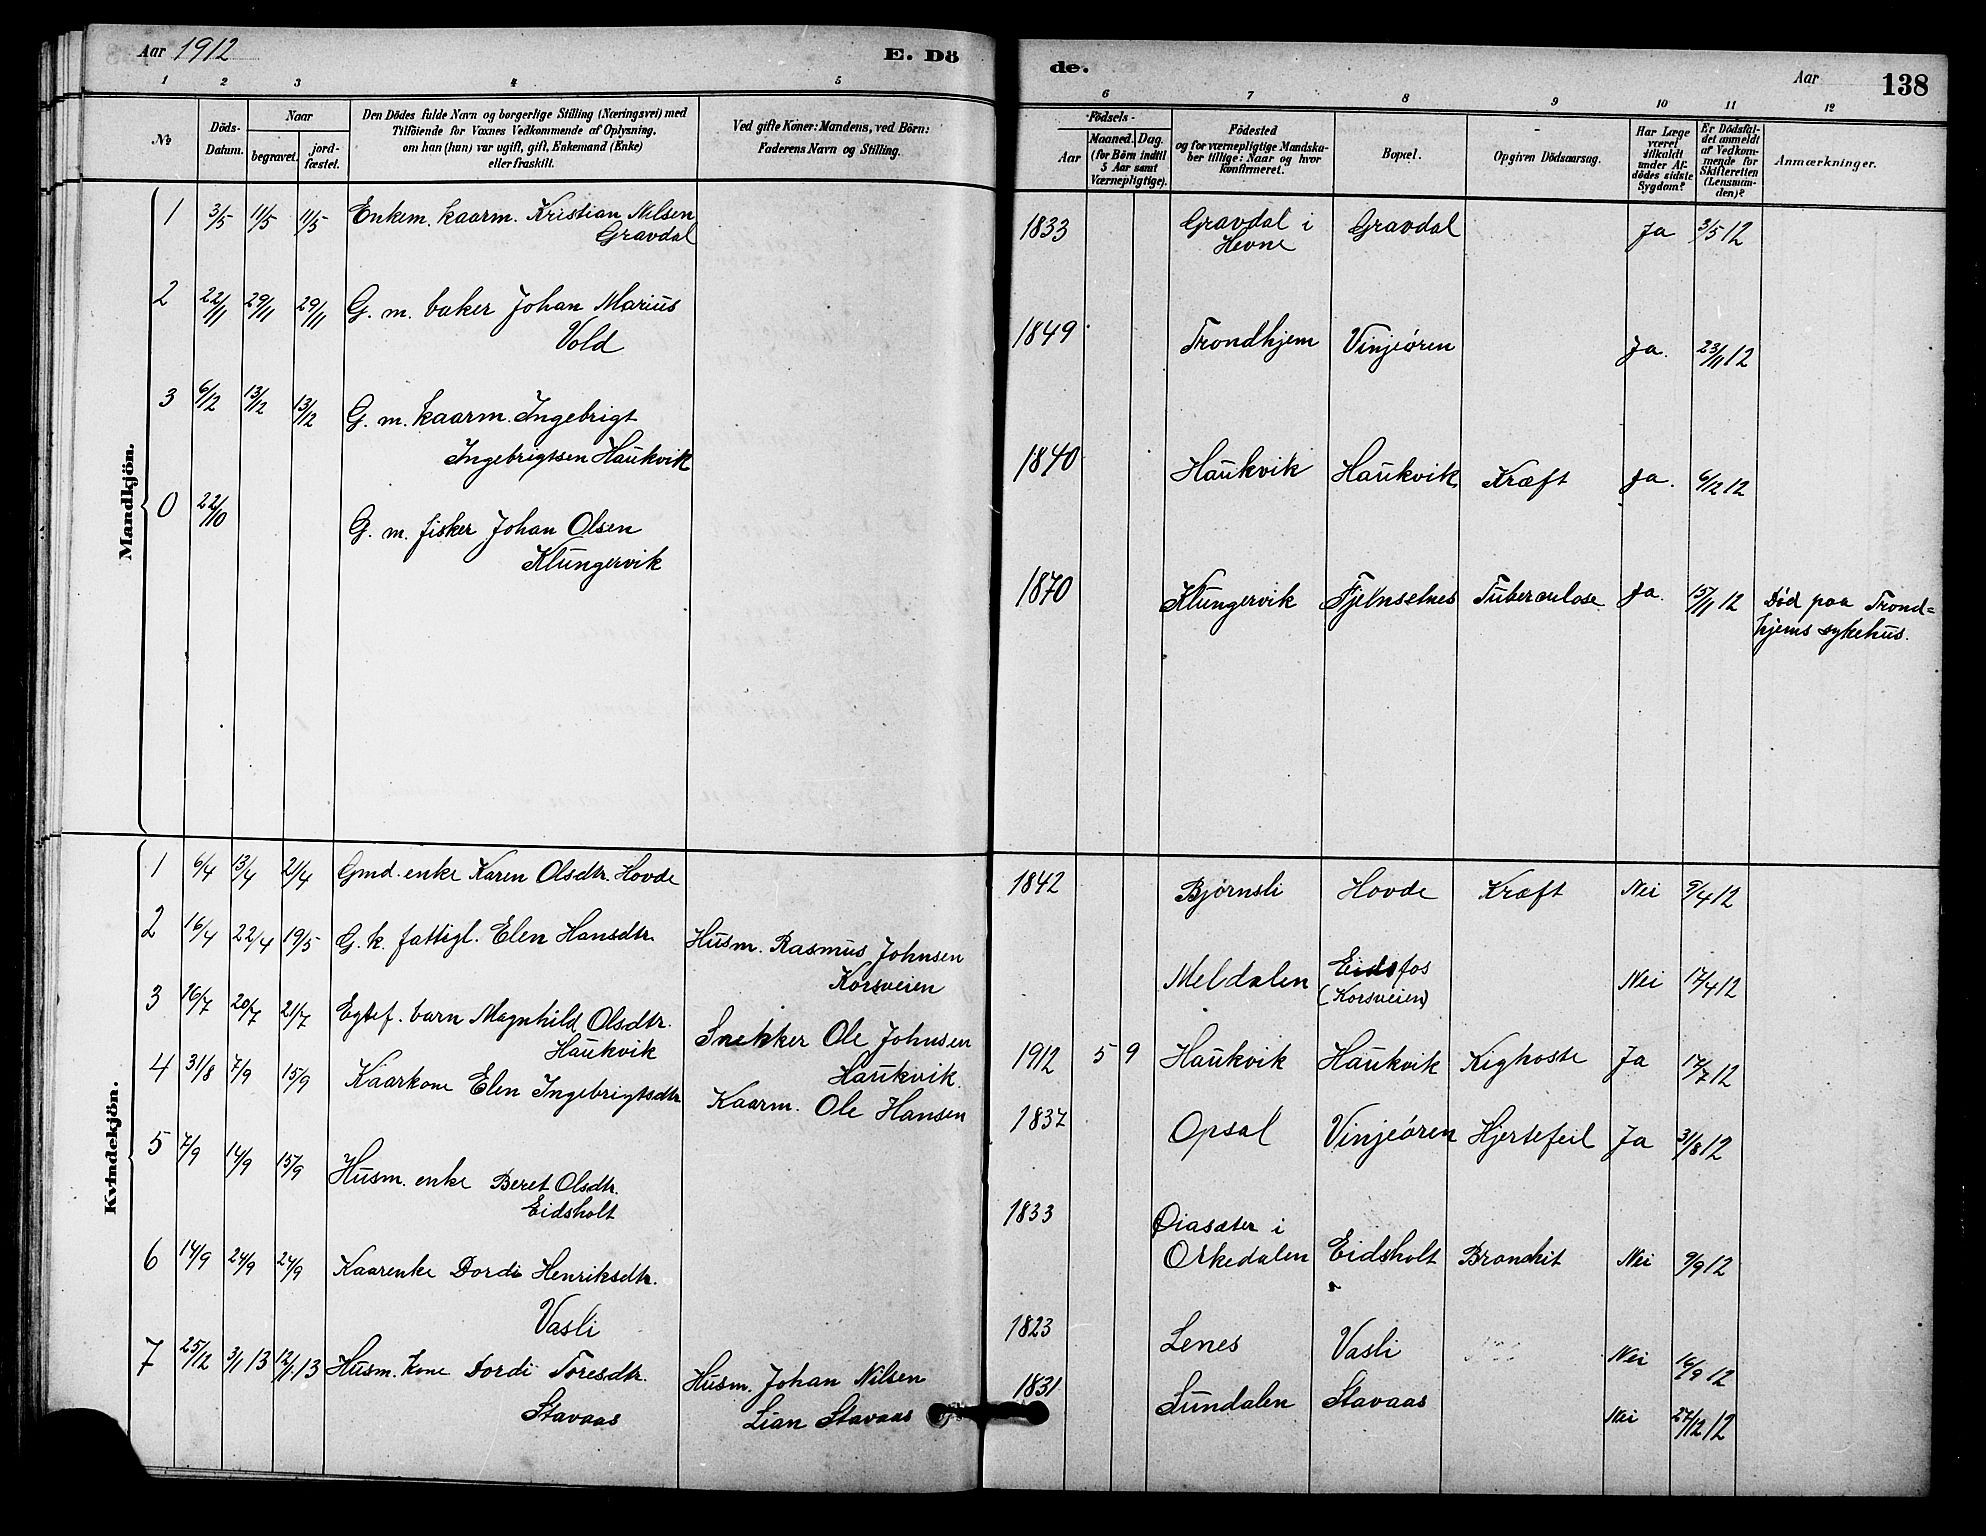 Aar 1912
E. Dö
de.
Aar
138
1 2 3 4 5
6 7 8 9 10 11 12
№
Döds-
Datum.
Naar
begravet.
jord-
fæstet.
Den Dödes fulde Navn og borgerlige Stilling (Næringsvei) med
Tilföiende for Voxnes Vedkommende af Oplysning.
om han (hun) var ugift, gift, Enkemand (Enke)
eller fraskilt.
Ved gifte Koner: Mandens, ved Börn:
Faderens Navn og Stilling.
Födsels-
Aar
Maaned. Dag.
(for Börn indtil
5 Aar samt
Værnepligtige).
Födested
og for værnepligtige Mandska-
ber tillige: Naar og hvor
konfirmeret.
Bopæl.
Opgiven Dödsaarsag.
Har Læge
været
tilkaldt
under Af-
dödes sidste
Sygdom?
Er Dödsfal-
det anmeldt
af Vedkom-
mende for
Skifteretten
(Lensman-
den)?
Anmærkninger.
Mandkjön.
1 3/5 11/5 11/5 Enkem. kaarm. Kristian Nilsen
Gravdal
1833 Gravdal i
Hevne
Gravdal Ja 3/5 12
2 22/11 29/11 29/11 G. m. baker Johan Marius
Vold
1849 Trondhjem Vinjeøren Ja. 23/11 12
3 6/12 13/12 13/12 G. m. kaarm. Ingebrigt
Ingebrigtsen Haukvik
1840 Haukvik Haukvik Kræft Ja. 6/12 12
0 22/10 G. m. fisker Johan Olsen
Klungervik
1870 Klungervik Fjelnselnes Tuberculose Ja. 15/11 12 Død paa Trond=
hjems sykehus.
Kvindekjön.
1 6/4 13/4 21/4 Gmd. enke Karen Olsdtr. Hovde
1842 Bjørnsli Hovde Kræft Nei 9/4 12
2 16/4 22/4 19/5 G. k. fattigl. Elen Hansdtr. Husm. Rasmus Johnsen
Korsveien
Meldalen Eidsfos
(Korsveien)
Nei 17/4 12
3 16/7 20/7 21/7 Egtef. barn Magnhild Olsdtr.
Haukvik
Snekker Ole Johnsen
Haukvik.
1912 5 9 Haukvik Haukvik Kighoste Ja 17/7 12
4 31/8 7/9 15/9 Kaarkone Elen Ingebrigtsdtr Kaarm. Ole Hansen
1837 Opsal Vinjeøren Hjertefeil Ja 31/8 12
5 7/9 14/9 15/9 Husm. enke Beret Olsdtr.
Eidsholt
1833 Øiasæter i
Orkedalen Eidsholt Bronkit Nei 9/9 12
6 14/9 24/9 24/9 Kaarenke Dordi Henriksdtr.
Vasli
1823 Lenes Vasli Nei 16/9 12
7 25/12 3/1 13 12/1 13 Husm. kone Dordi Toresdtr.
Stavaas
Husm. Johan Nilsen
Lian Stavaas
1831 Sundalen Stavaas Nei 27/12 12